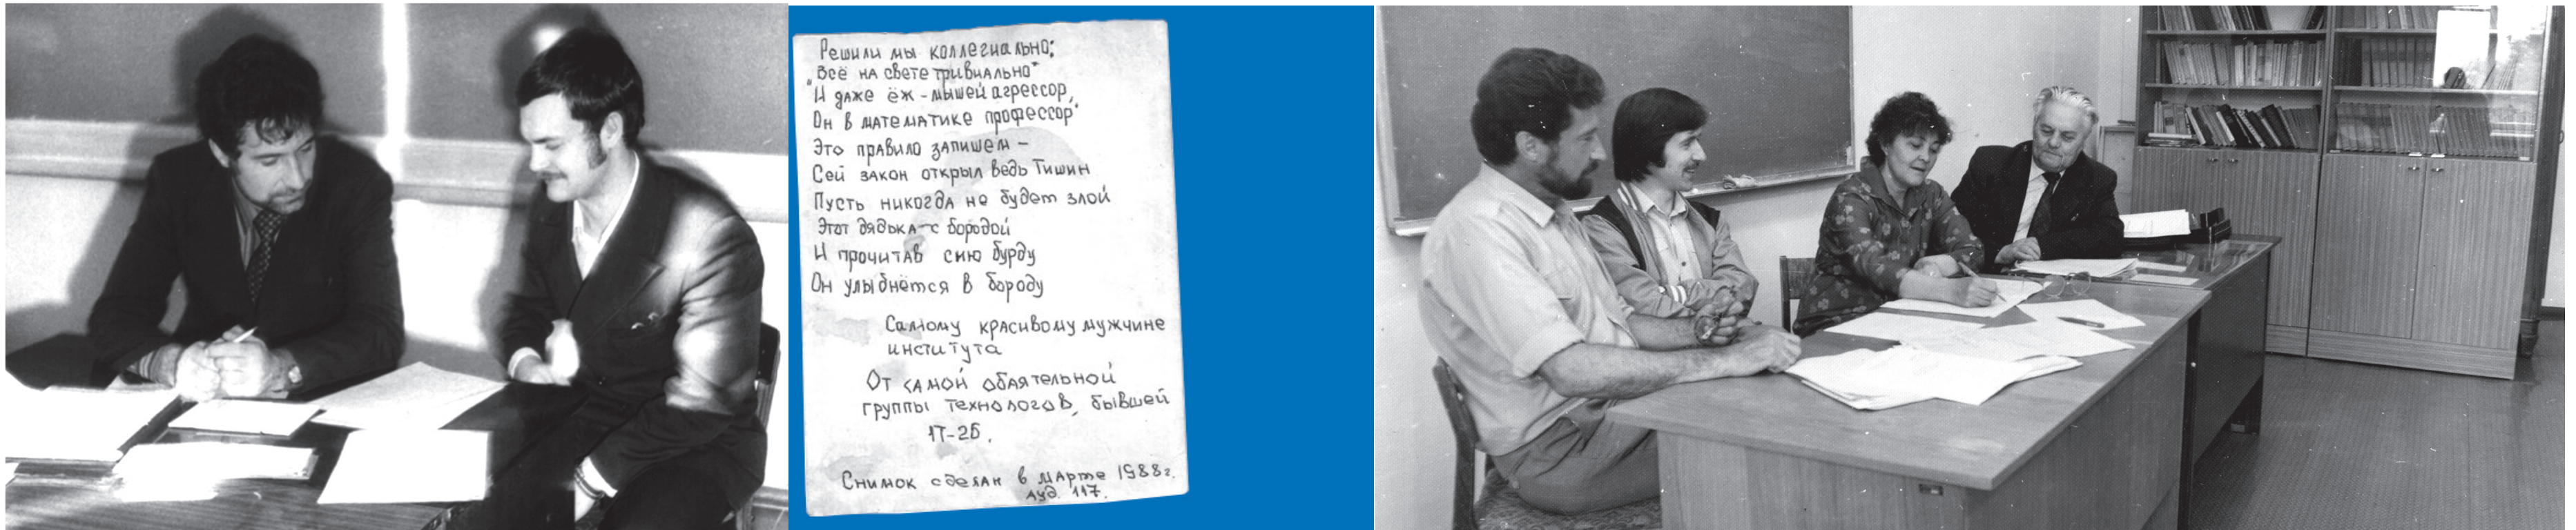 Решили мы коллегиально:
"Всё на свете тривиально"
"И даже ёж - мышей агрессор,
Он в математике профессор"
Это правило запишем -
Сей закон открыл ведь Тишин
Пусть никогда не будет злой
Этот дядька с бородой
И прочитав сию бурду
Он улыбнётся в бороду
Самому красивому мужчине
института
От самой обаятельной
группы технологов, бывшей
1Т-25.
Снимок сделан в марте 1988г.
Ауд. 117.